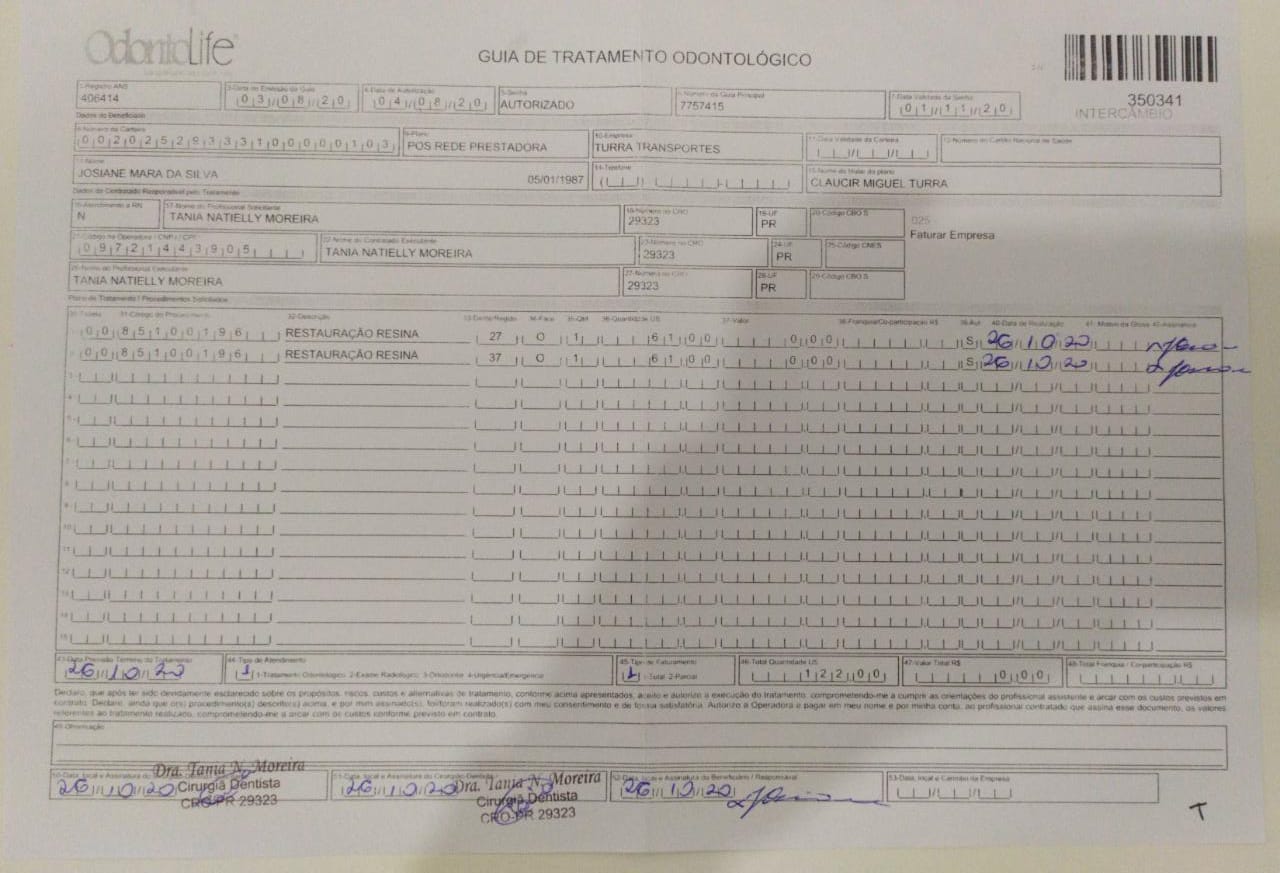 OdontoLife
GUIA DE TRATAMENTO ODONTOLÓGICO
350341
INTERCÂMBIO
1-Registro ANS
406414
3-Data de Emissão da Guia
03/08/20
4-Data de Autorização
04/08/20
5-Senha
AUTORIZADO
6-Número da Guia Principal
7757415
7-Data Validade da Senha
01/11/20
Dados do Beneficiário
8-Número da Carteira
00202529333100000103
9-Plano
POS REDE PRESTADORA
10-Empresa
TURRA TRANSPORTES
11-Data Validade da Carteira
12-Número do Cartão Nacional de Saúde
13-Nome
JOSIANE MARA DA SILVA 05/01/1987
14-Telefone
15-Nome do titular do plano
CLAUCIR MIGUEL TURRA
Dados do Contratado Responsável pelo Tratamento
16-Atendimento a RN
N
17-Nome do Profissional Solicitante
TANIA NATIELLY MOREIRA
18-Número no CRO
29323
19-UF
PR
20-Código CBO S
025
Faturar Empresa
21-Código na Operadora / CNPJ / CPF
09721443905
22-Nome do Contratado Executante
TANIA NATIELLY MOREIRA
23-Número no CRO
29323
24-UF
PR
25-Código CNES
26-Nome do Profissional Executante
TANIA NATIELLY MOREIRA
27-Número no CRO
29323
28-UF
PR
29-Código CBO S
Plano de Tratamento / Procedimentos Solicitados
30-Tabela 31-Código do Procedimento 32-Descrição 33-Dente/Região 34-Face 35-Qtd 36-Quantidade US 37-Valor 38-Franquia/Co-participação R$ 39-Aut 40-Data de Realização 41- Motivo da Glosa 42-Assinatura
00 85100196 RESTAURAÇÃO RESINA 27 O 1 61 00 0 00 S 26/10/20
00 85100196 RESTAURAÇÃO RESINA 37 O 1 61 00 0 00 S 26/10/20
3-
4-
5-
6-
7-
8-
9-
10-
11-
12-
13-
14-
15-
43-Data Previsão Término do Tratamento
26/10/20
44-Tipo de Atendimento
1 1-Tratamento Odontológico 2-Exame Radiológico 3-Ortodontia 4-Urgência/Emergência
45-Tipo de Faturamento
1 1-Total 2-Parcial
46-Total Quantidade US
122 00
47-Valor Total R$
0 00
48-Total Franquia / Co-participação R$
Declaro, que após ter sido devidamente esclarecido sobre os propósitos, riscos, custos e alternativas de tratamento, conforme acima apresentados, aceito e autorizo a execução do tratamento, comprometendo-me a cumprir as orientações do profissional assistente e arcar com os custos previstos em
contrato. Declaro, ainda que o(s) procedimento(s) descrito(s) acima, e por mim assinado(s), foi/foram realizado(s) com meu consentimento e de forma satisfatória. Autorizo a Operadora a pagar em meu nome e por minha conta, ao profissional contratado que assina esse documento, os valores
referentes ao tratamento realizado, comprometendo-me a arcar com os custos conforme previsto em contrato.
49-Observação
50-Data, local e Assinatura do
26/10/20
Dra. Tania N. Moreira
Cirurgiã Dentista
CRO-PR 29323
51-Data, local e Assinatura do Cirurgião Dentista
26/10/20
Dra. Tania N. Moreira
Cirurgiã Dentista
CRO-PR 29323
52-Data, local e Assinatura do Beneficiário / Responsável
26/10/20
53-Data, local e Carimbo da Empresa
T